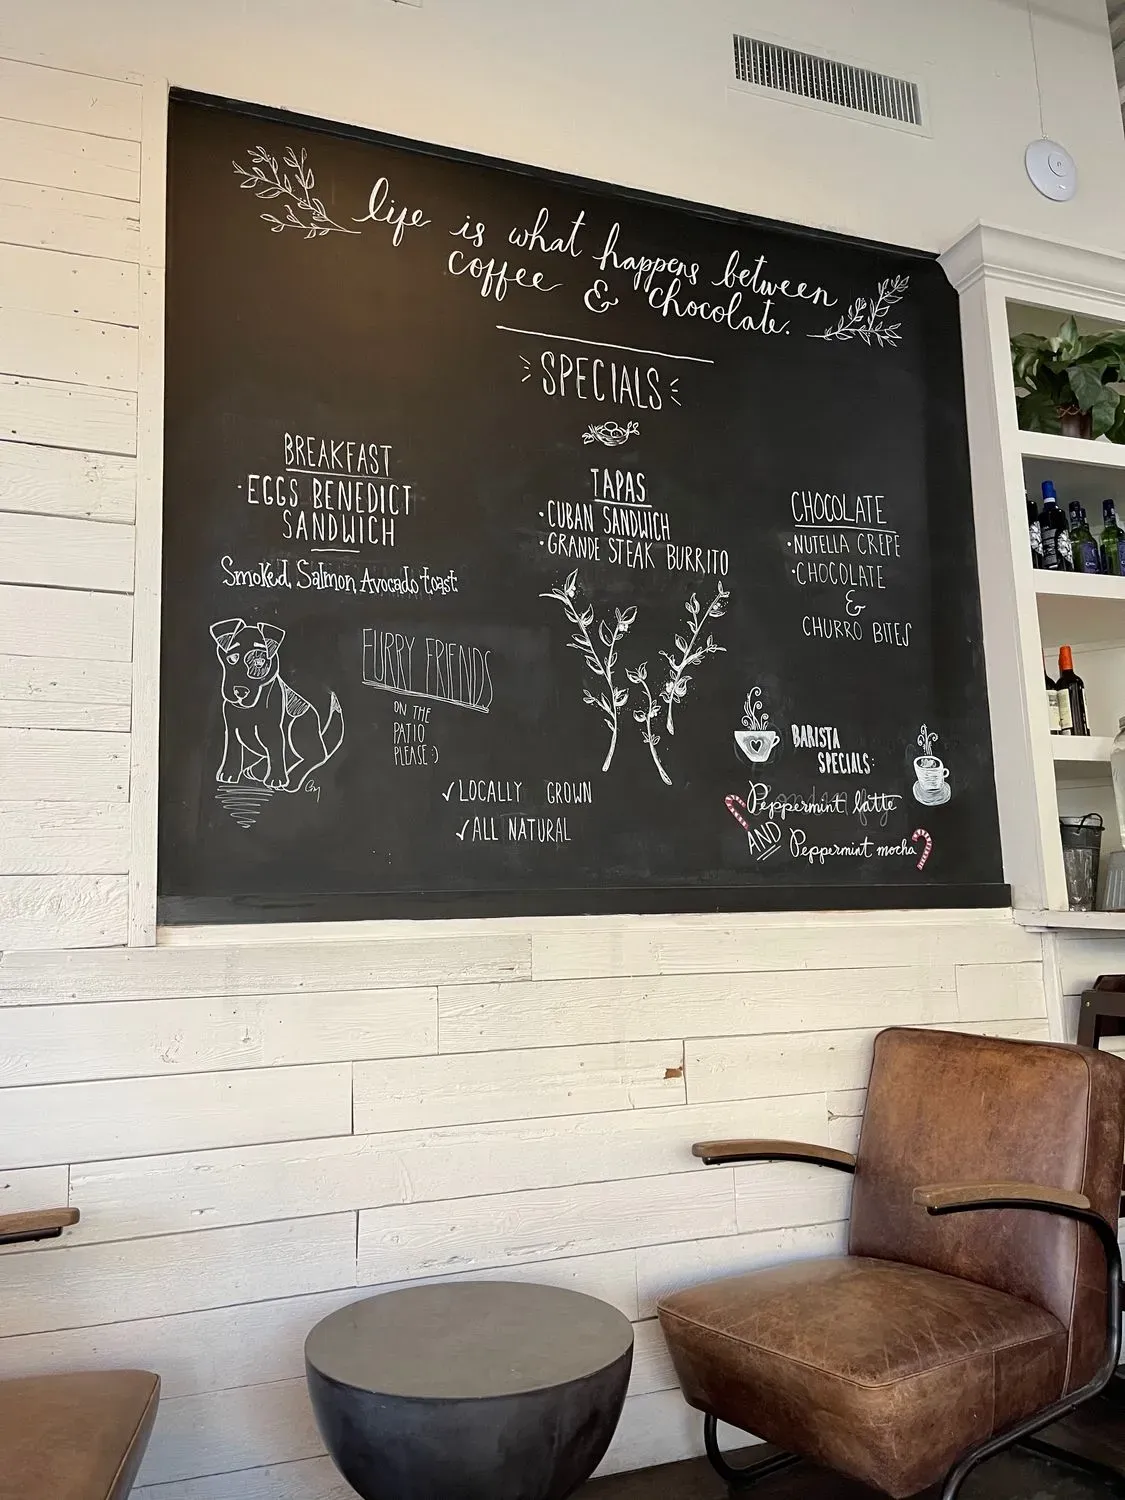 life is what happens between
coffee & chocolate.
SPECIALS
BREAKFAST
·EGGS BENEDICT
SANDWICH
Smoked, Salmon, Avocado toast
TAPAS
·CUBAN SANDWICH
·GRANDE STEAK BURRITO
CHOCOLATE
·NUTELLA CREPE
·CHOCOLATE
&
CHURRO BITES
FURRY FRIENDS
ON THE
PATIO
PLEASE :)
✓LOCALLY GROWN
✓ALL NATURAL
BARISTA
SPECIALS:
Peppermint latte
AND Peppermint mocha